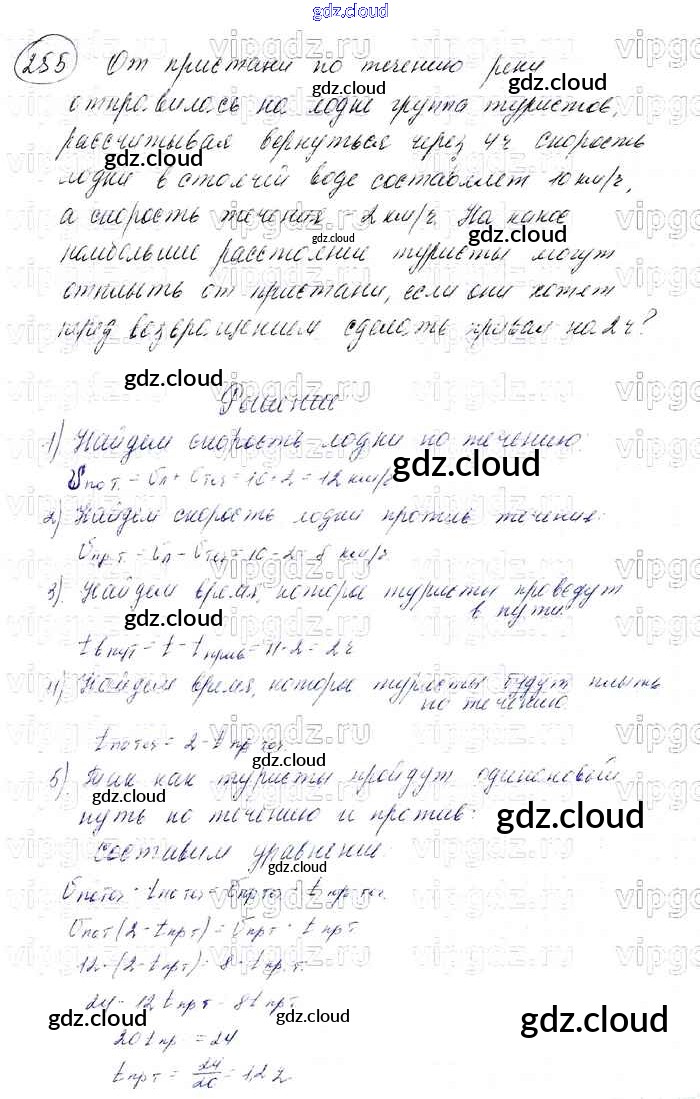 gdz.cloud
255 От пристани по течению реки
отправилось на лодке группа туристов,
рассчитывая вернуться через 4ч скорость
лодки в стоячей воде составляет 10 км/ч,
а скорость течения - 2 км/ч. На какое
наибольшие расстояние туристы могут
отплыть от пристани, если они хотят
перед возвращением сделать привал на 2 ч?
Решение
1) Найдем скорость лодки по течению:
υпот. = υл + υтеч = 10 + 2 = 12 км/ч
2) Найдем скорость лодки против течения:
υпр т = υл - υтеч = 10 - 2 = 8 км/ч
3) Найдем время, которое туристы проведут
в пути
tвпут = t - tприв = 4 - 2 = 2ч
4) Найдем время, которое туристы будут плыть
по течению
tпотеч = 2 - tпр теч.
5) Так как туристы пройдут одинаковый
путь по течению и против:
составим уравнение:
υпотеч · tпотеч = υпртеч · tпр теч.
υпот (2 - tпр т) = υпр т · tпр т
12 · (2 - tпр т) = 8 · tпр. т
24 - 12 tпр т = 8 tпр т
20 tпр = 24
tпр т = 24/20 = 1,2 ч
gdz.cloud
vipgdz.ru